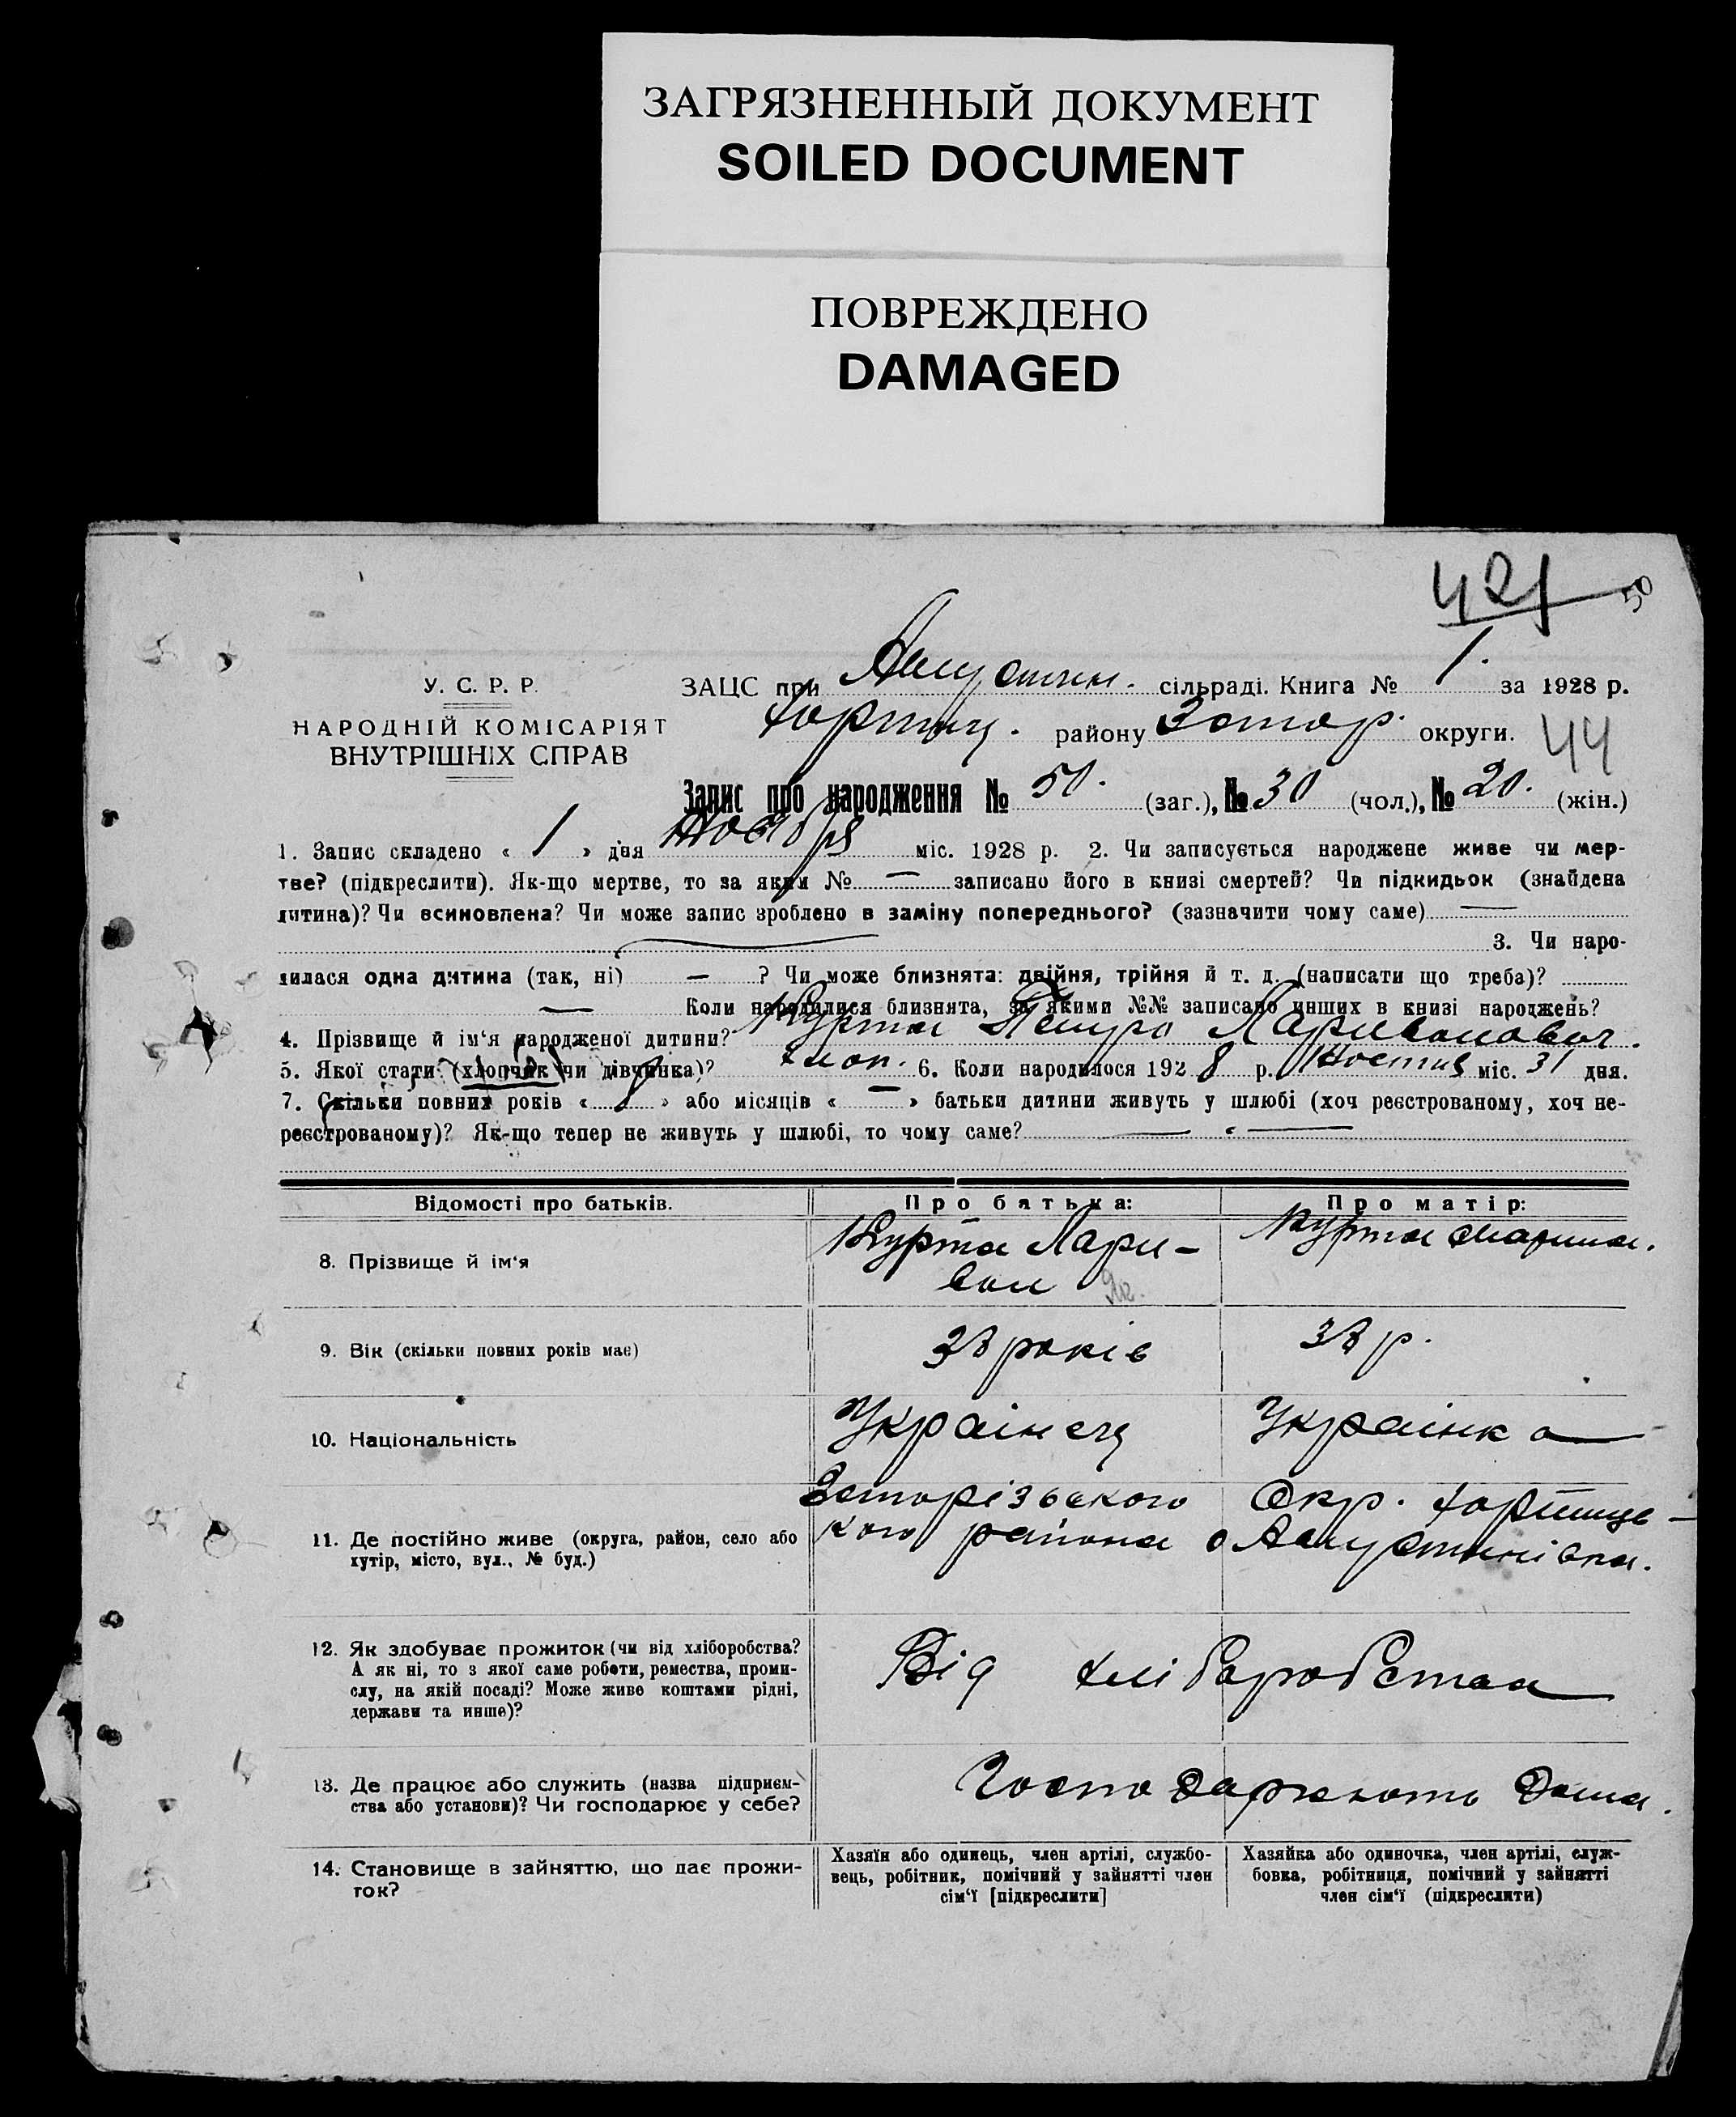 ЗАГРЯЗНЕННЫЙ ДОКУМЕНТ
SOILED DOCUMENT
ПОВРЕЖДЕНО
DAMAGED
421
50
У. С. Р. Р.
НАРОДНІЙ КОМІСАРІЯТ
ВНУТРІШНІХ СПРАВ
ЗАЦС при Августин. сільраді. Книга № 1. за 1928 р.
Хортиц. району Запор. округи.
44
Запис про народження № 50. (заг.), № 30 (чол.), № 20. (жін.)
1. Запис складено « 1 » дня Ноября міс. 1928 р. 2. Чи записується народжене живе чи мер-
тве? (підкреслити). Як-що мертве, то за яким № — записано його в книзі смертей? Чи підкидьок (знайдена
дитина)? Чи всиновлена? Чи може запис зроблено в заміну попереднього? (зазначити чому саме) —
3. Чи наро-
дилася одна дитина (так, ні) — ? Чи може близнята: двійня, трійня й т. д. (написати що треба)?
— Коли народилися близнята, за якими №№ записано инших в книзі народжень?
4. Прізвище й ім'я народженої дитини? Курта Петро Ларивонович.
5. Якої стати (хлопчик чи дівчинка)? хлоп. 6. Коли народилося 1928 р. міс. 31 дня.
7. Скільки повних років « » або місяців « — » батьки дитини живуть у шлюбі (хоч реєстрованому, хоч не-
реєстрованому)? Як-що тепер не живуть у шлюбі, то чому саме? —
Відомості про батьків. Про батька: Про матір:
8. Прізвище й ім'я Курта Лари- Курта Марина.
вон
9. Вік (скільки повних років має) 38 років 38 р.
10. Національність Украінец Украінка
11. Де постійно живе (округа, район, село або Запорізького Окр. Хортиць-
хутір, місто, вул., № буд.) кого района с Августинівка.
12. Як здобуває прожиток (чи від хліборобства? Від хліборобства
А як ні, то з якої саме роботи, ремества, проми-
слу, на якій посаді? Може живе коштами рідні,
держави та инше)?
13. Де працює або служить (назва підприєм- Господарюють дома.
ства або установи)? Чи господарює у себе?
14. Становище в зайняттю, що дає прожи-
ток?
Хазяїн або одинець, член артілі, службо-
вець, робітник, помічний у зайнятті член
сім'ї [підкреслити]
Хазяйка або одиночка, член артілі, служ-
бовка, робітниця, помічний у зайнятті
член сім'ї (підкреслити)